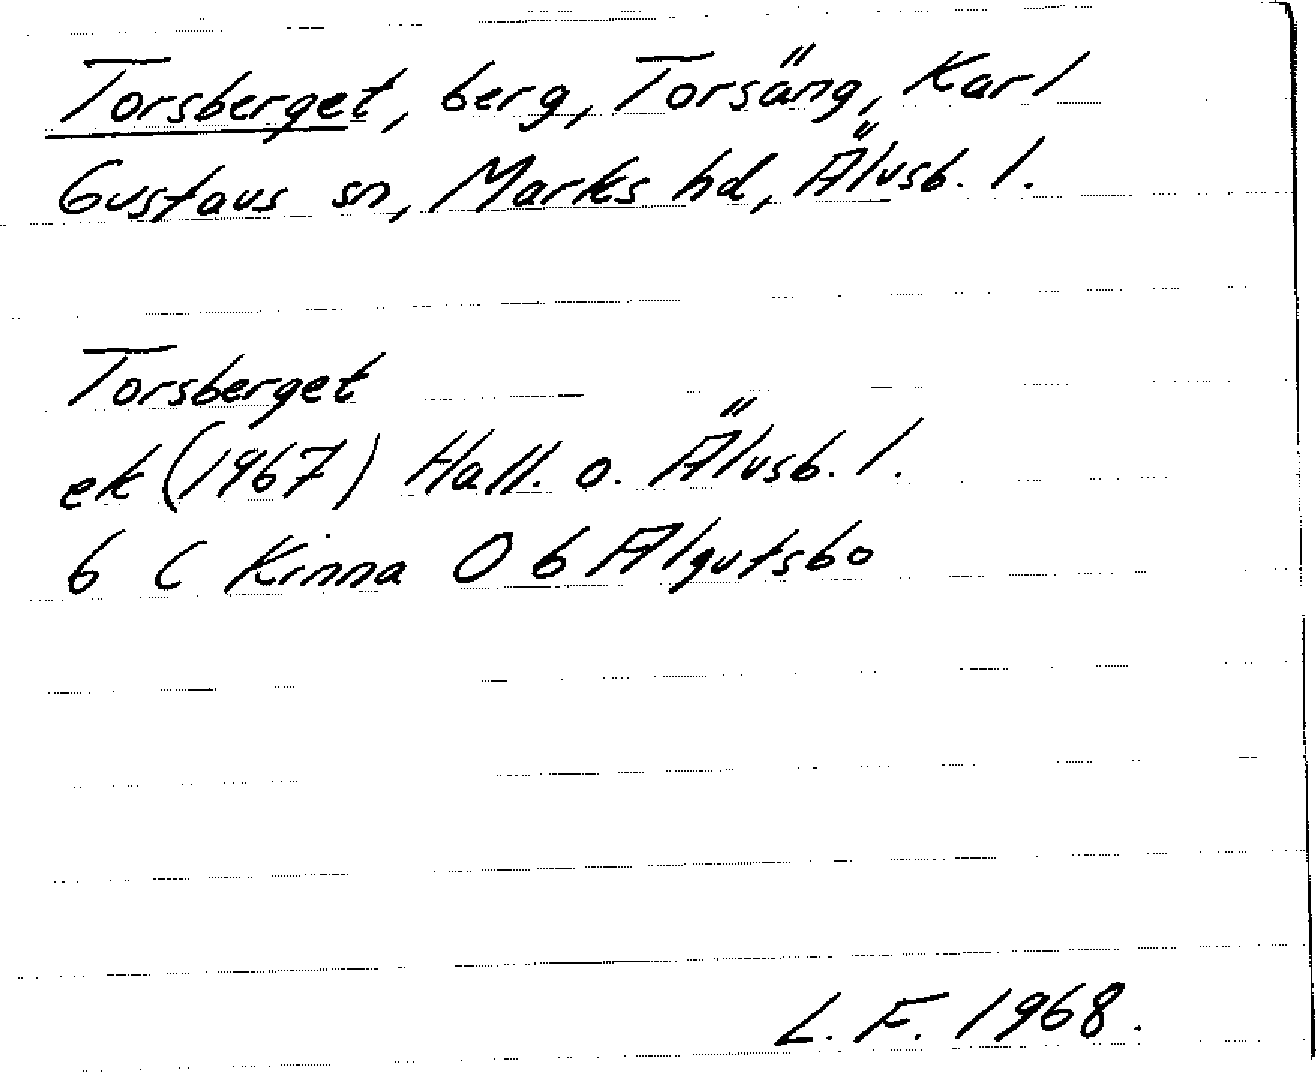 Torsberget, berg, Torsäng, Karl
Gustavs sn, Marks hd, Älvsb. l.
Torsberget
ek (1967) Hall. o. Älvsb. l.
6 C Kinna 0 b Algutsbo
L. F. 1968.